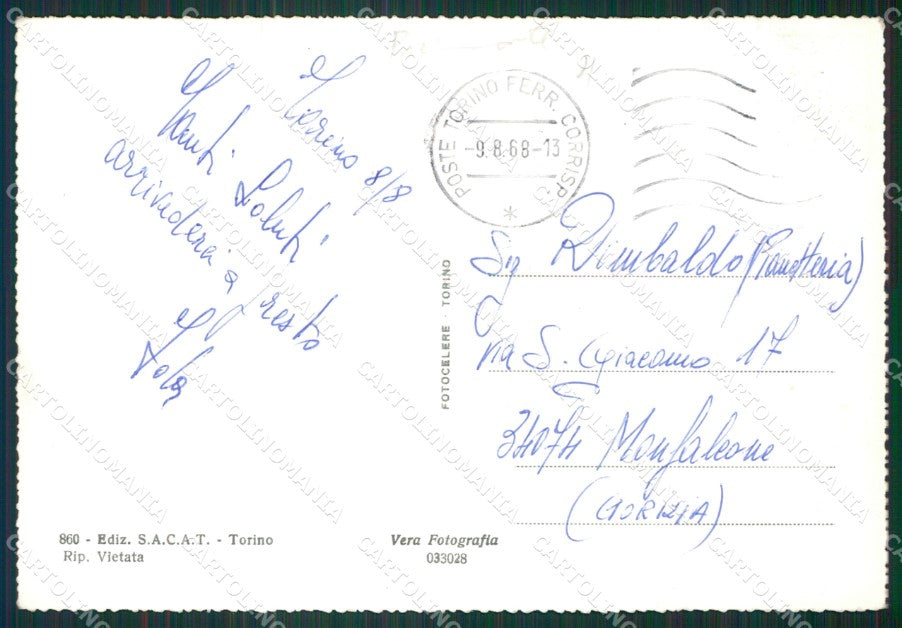 Torino 8/8
Tanti Saluti
arrivederci a presto
POSTE TORINO FERR. CORRISP.
-9.8.68-13
*
FOTOCELERE · TORINO
Sig Rimbaldo (Panetteria)
Via S. Giacomo 17
34074 Monfalcone
(GORIZIA)
860 - Ediz. S.A.C.A.T. - Torino
Rip. Vietata
Vera Fotografia
033028
CARTOLINOMANIA